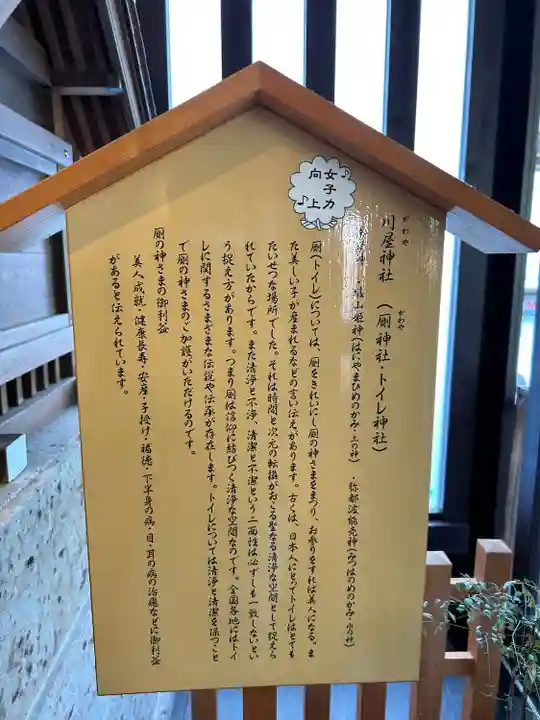 女子力
向上
川屋神社（厠神社・トイレ神社）
がわや
がわや
山姫神（はにやまひめのかみ・土の神）・弥都波能売神（みつはのめのかみ・水の神）
厠（トイレ）については、「厠をきれいにし厠の神さまをまつり、お参りをすれば美人になる。ま
た美しい子が産まれるなどの言い伝えがあります。古くは、日本人にとってトイレはとても
たいせつな場所でした。それは時間と次元の転換がおこる聖なる清浄な空間として捉えら
れていたからです。また清浄と不浄、清潔と不潔という二面性は必ずしも一致しないとい
う捉え方があります。つまり厠は信仰に結びつく清浄な空間なのです。全国各地にはトイ
レに関するさまざまな伝説や伝承が存在します。トイレについては清浄と清潔を保つこと
で厠の神さまのご加護がいただけるのです。
厠の神さまの御利益
美人成就・健康長寿・安産・子授け・福徳・下半身の病・目・耳の病の治癒などに御利益
があると伝えられています。